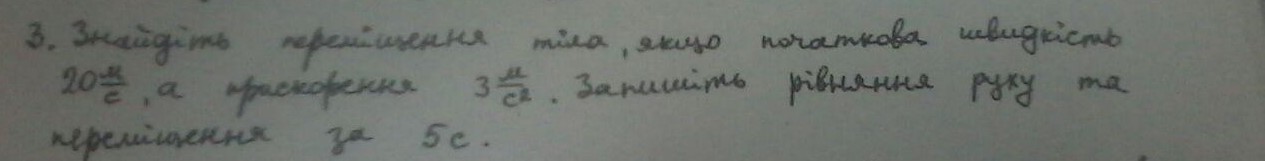 3. Знайдіть переміщення тіла, якщо початкова швидкість
20 м/с, а прискорення 3 м/с². Запишіть рівняння руху та
переміщення за 5с.